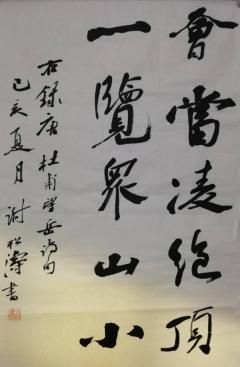 會當凌絶頂
一覽眾山小
右録唐杜甫望岳詩句
己亥夏月 謝松濤書